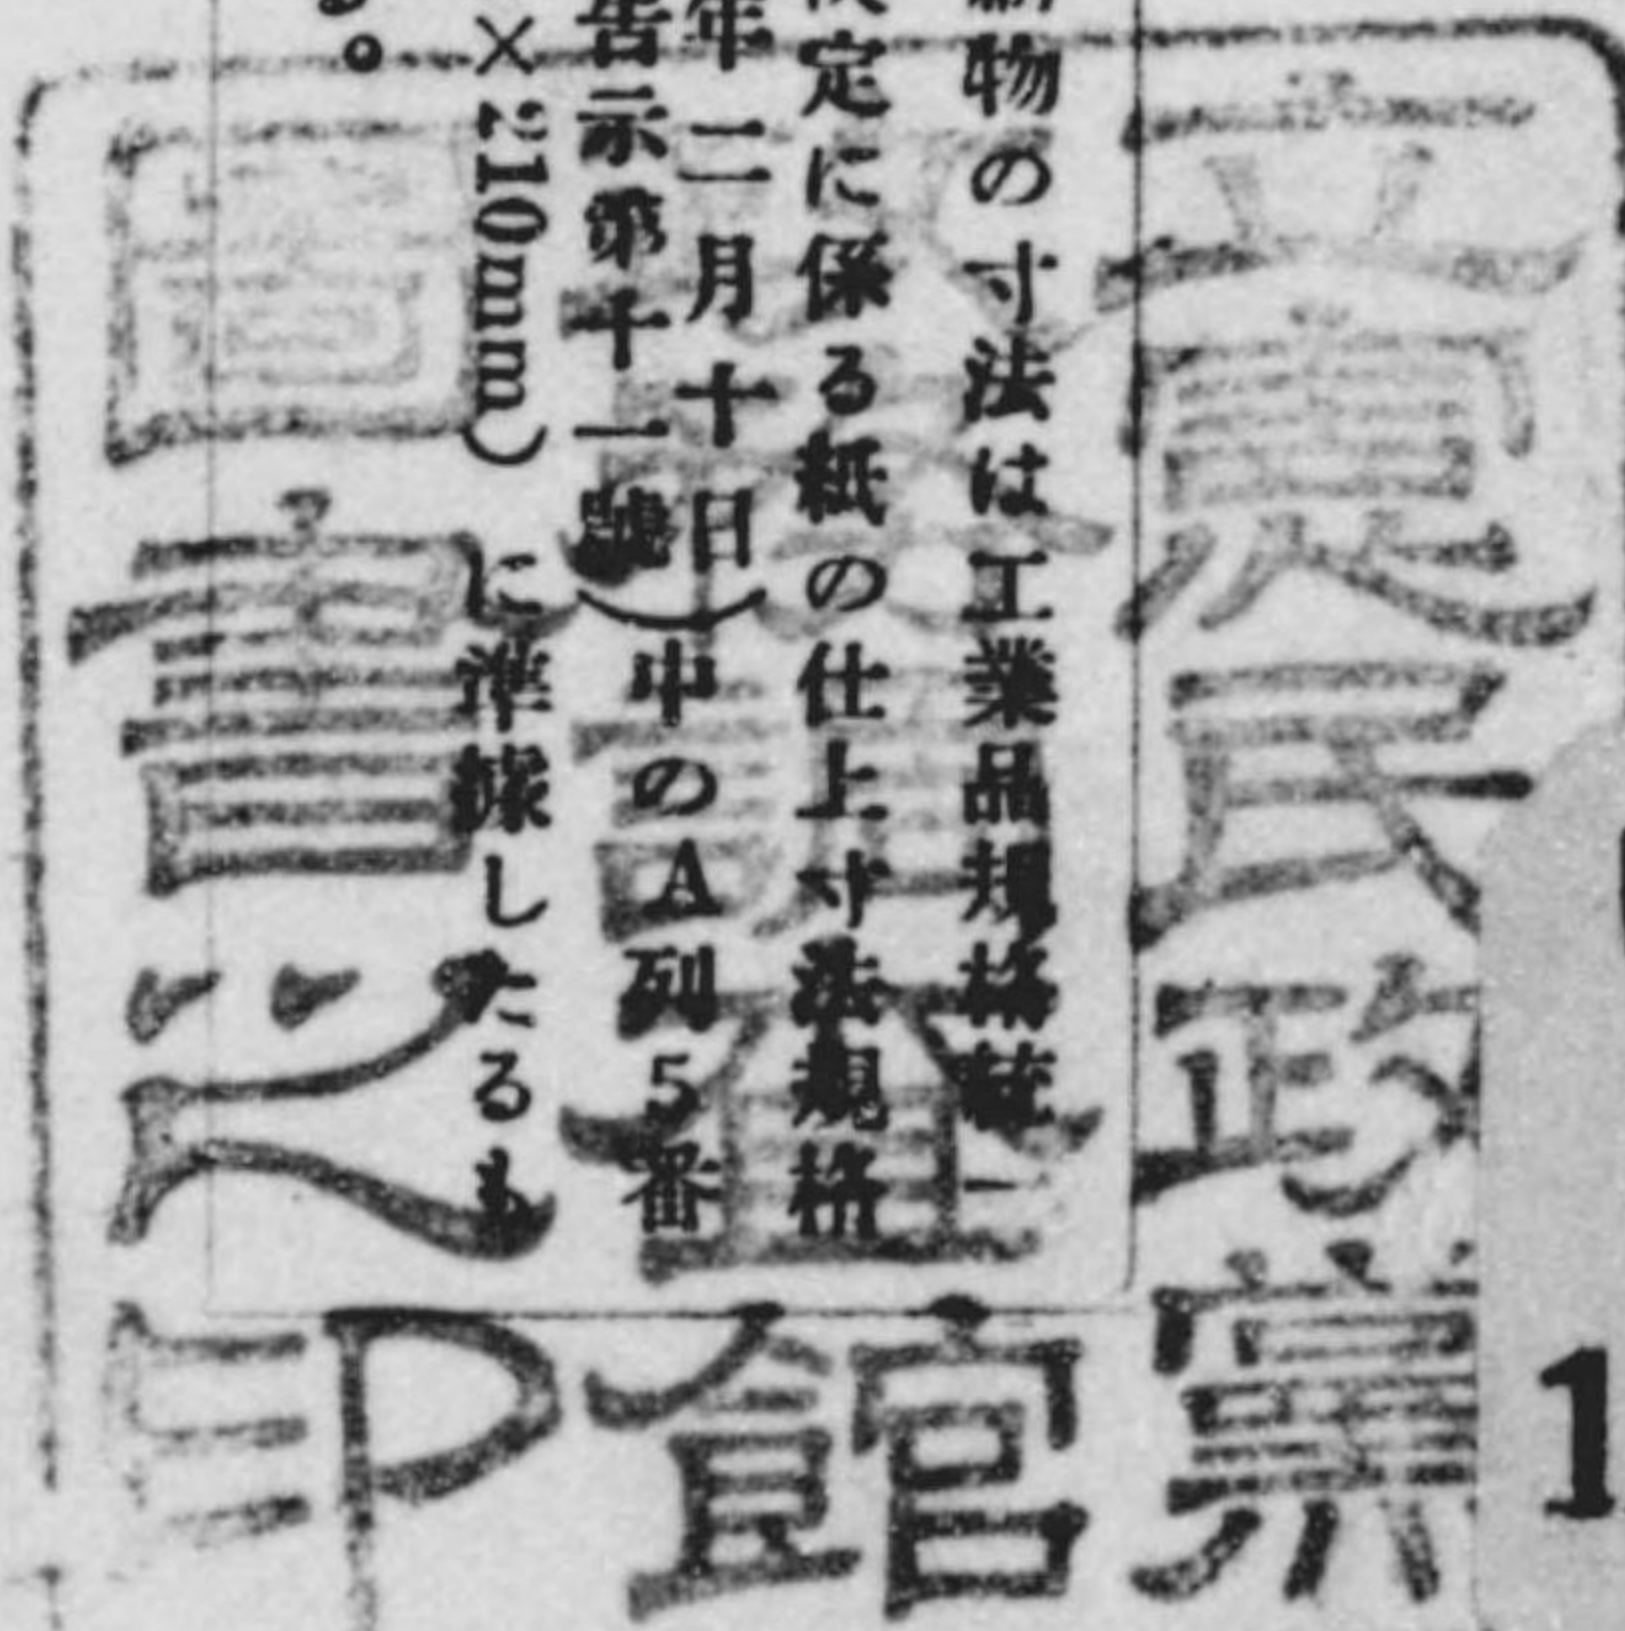 物の寸法は工業品規格統一
定に係る紙の仕上寸法規格
年二月十日
告示第千一號)中のA列5番
×210mm)に準據したるも
る。
立憲民政黨
文書館
圖書之印
1